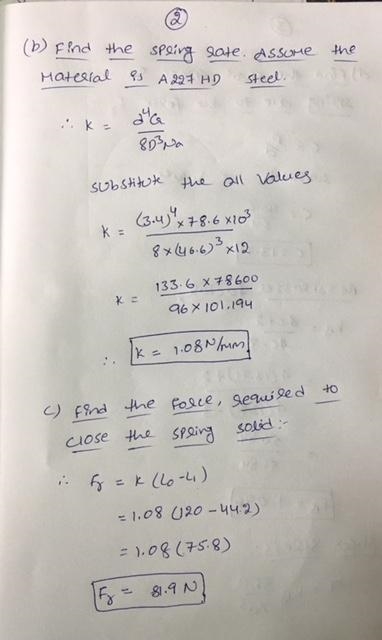 2
(b) Find the spring rate. Assume the
Material is A227 HD steel.
∴ K = d⁴G
8D³Na
substitute the all values
K = (3.4)⁴ x 78.6 x10³
8 x (46.6)³ x12
K = 133.6 x 78600
96 x 101.194
∴ K = 1.08 N/mm
c) Find the Force, required to
close the spring solid :-
∴ Fs = K (L0 - L1)
= 1.08 (120 - 44.2)
= 1.08 (75.8)
Fs = 81.9 N